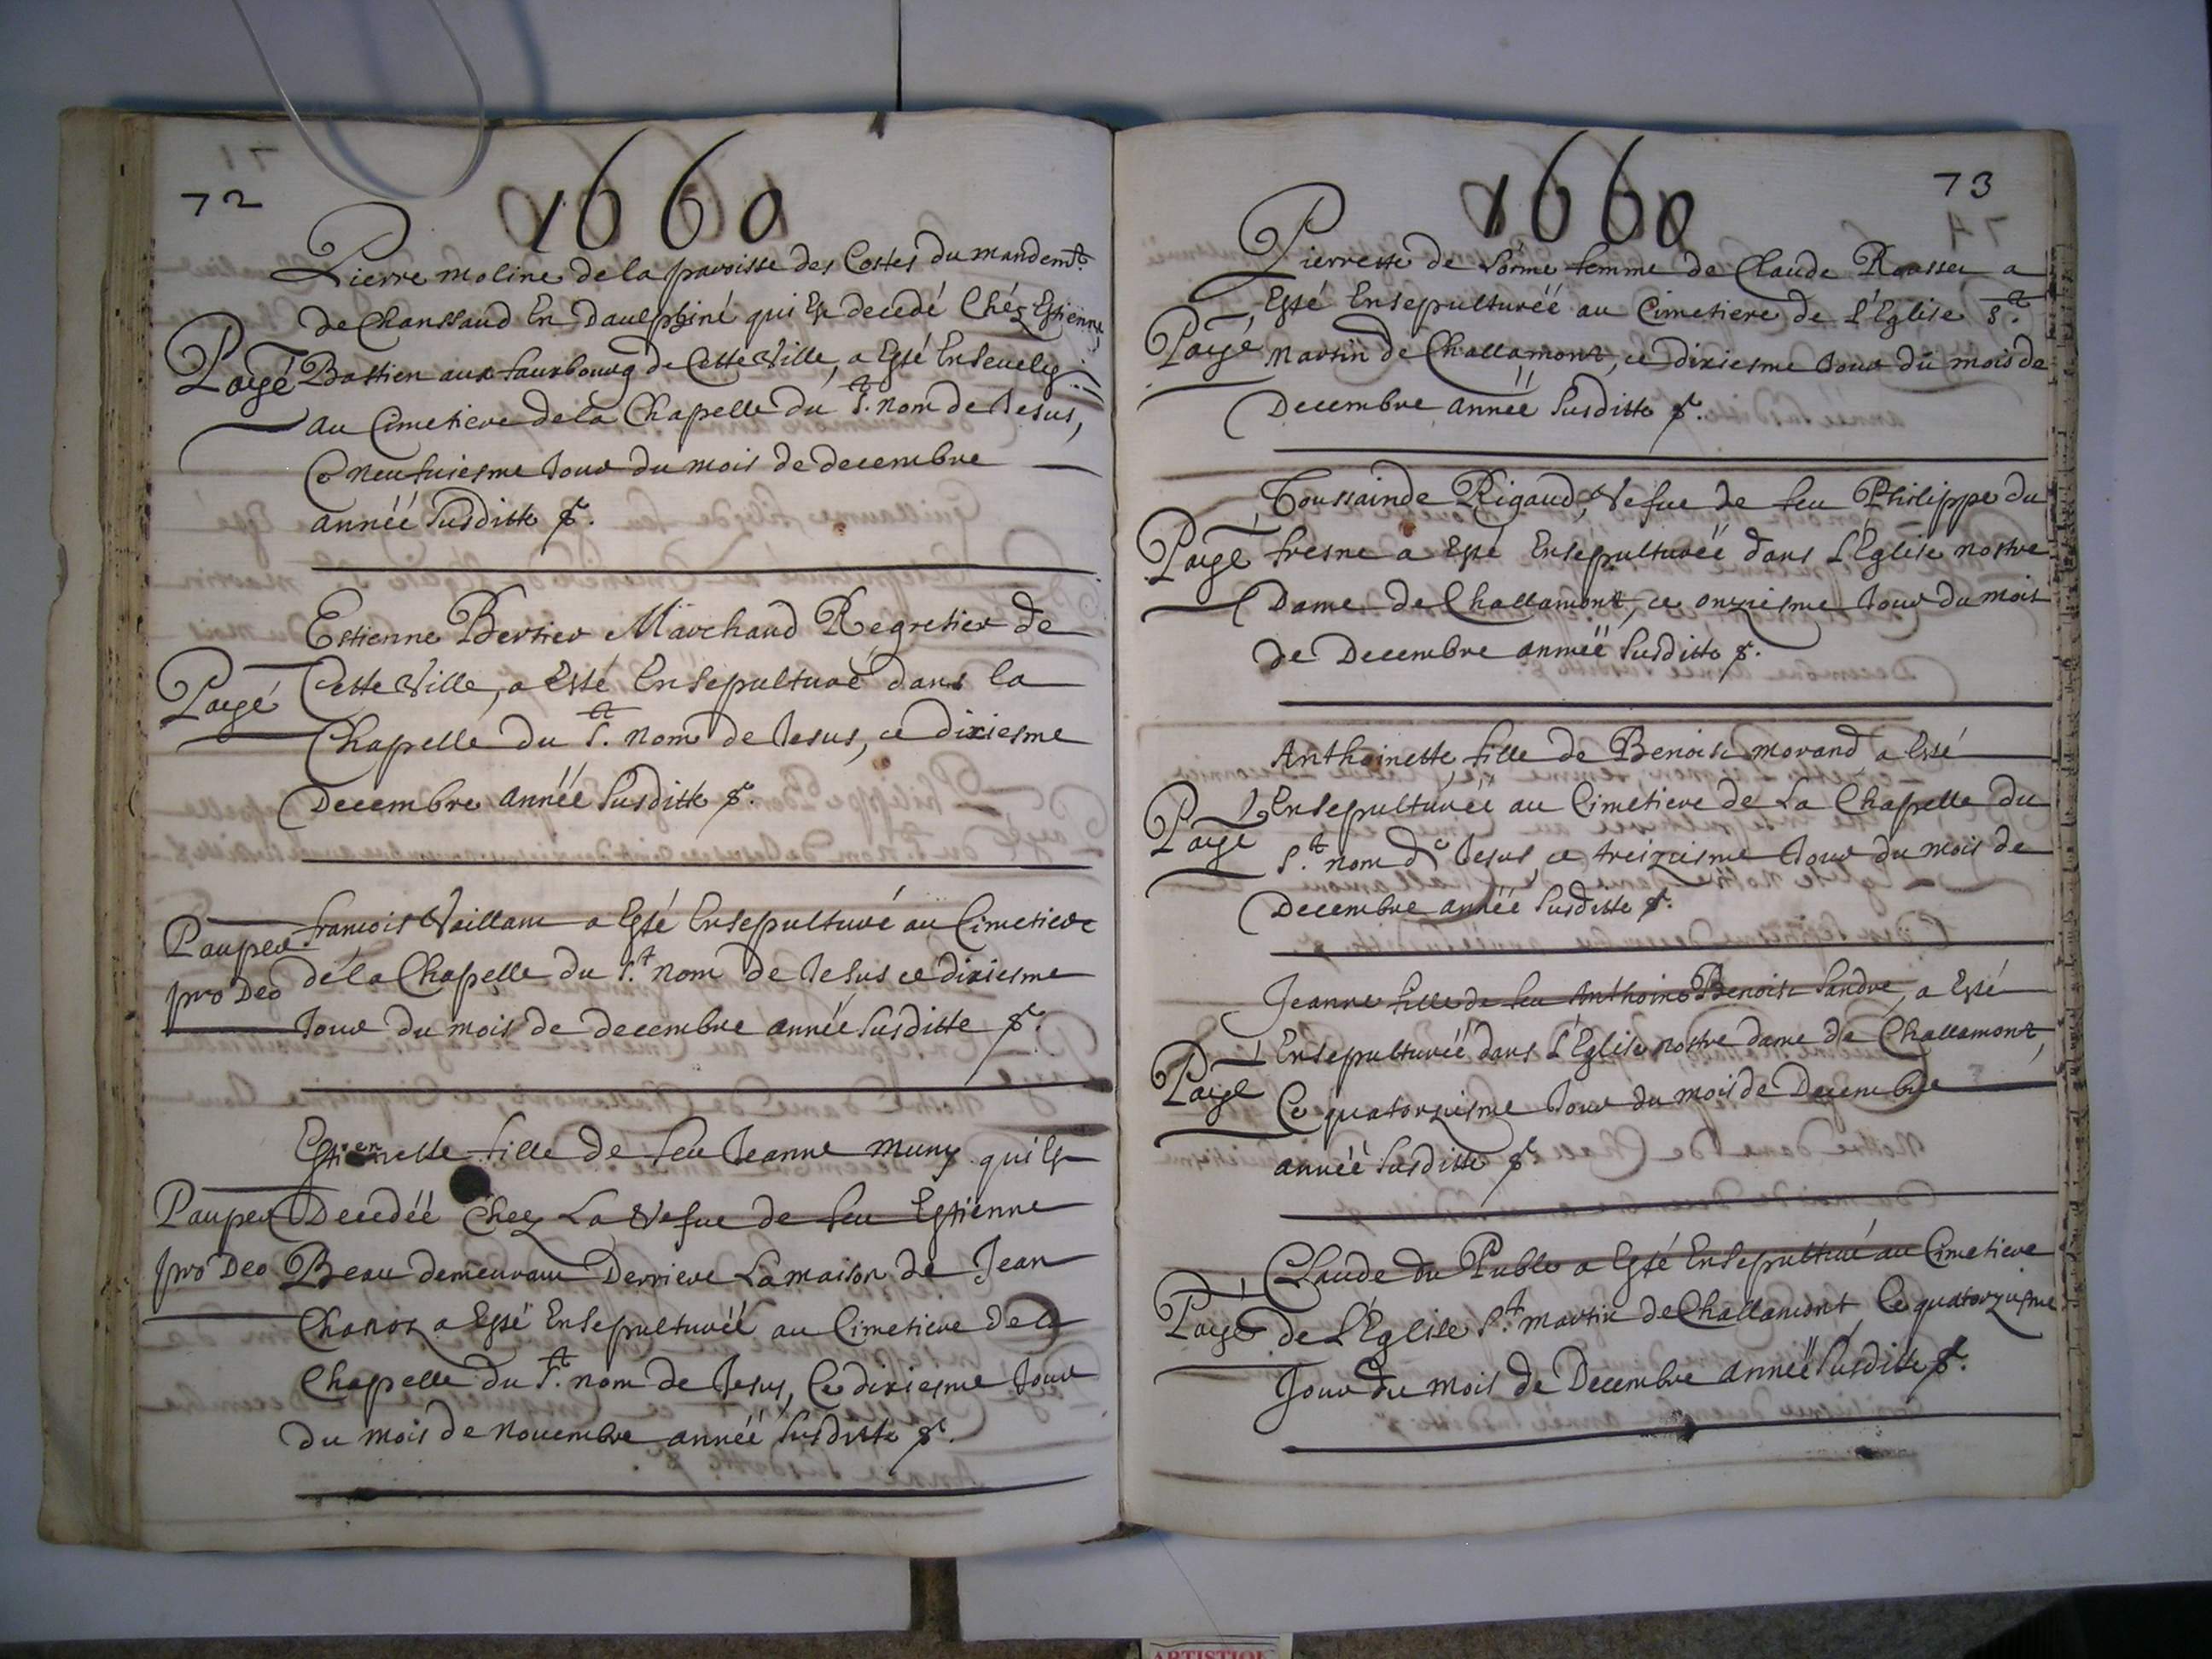 72
1660
Pierre moline de la paroisse des Costes du mandemt.
de Chanssaud En Dauelphiné qui Est decedé Chéz Estienne
Payé Bastien aux faurbourg de Cette Ville, a Esté Enseuely
au Cimetiere de la Chapelle du St. nom de Jesus,
Ce neufuiesme Jour du mois de decembre
année susditte &.
Estienne Bertier Marchand Regretier de
Payé Cette Ville, a Esté Ensepulturé dans la
Chapelle du St. nom de Jesus, ce dixiesme
Decembre année susditte &.
Pauper francois Vaillant a Esté Ensepulturé au Cimetiere
pro Deo de la Chapelle du St. nom de Jesus ce dixiesme
Jour du mois de decembre année susditte &.
Estiennette fille de feu Jeanne muny qui Est
Pauper Decedéé Chez La Vefue de feu Estienne
pro Deo Beau demeurant Derriere La maison de Jean
a Esté Ensepulturéé au Cimetiere de la
Chapelle du St. nom de Jesus, Ce dixiesme Jour
du mois de nouembre année susditte &.
73
1660
Pierrette de Lorme femme de Claude a
Esté Ensepulturéé au Cimetiere de L'Eglise St.
Payé martin de Challamont, ce dixiesme Jour du mois de
Decembre année susditte &.
Toussainde Rigaud, Vefue de feu Philippe du
Payé fresne a Esté Ensepulturéé dans L'Eglise nostre
Dame de Challamont, ce onziesme Jour du mois
de Decembre année susditte &.
Anthoinette fille de Benoist morand a Esté
Payé Ensepulturéé au Cimetiere de La Chapelle du
St. nom de Jesus, ce treiziesme Jour du mois de
Decembre année susditte &.
Jeanne fille de feu Anthoine Benoist Sandre, a Esté
Payé Ensepulturéé dans L'Eglise nostre dame de Challamont,
Ce quatorziesme Jour du mois de Decembre
année susditte &
Claude du Puble a Esté Ensepulturé au Cimetiere
Payé de L'Eglise St. martin de Challamont, Ce quatorziesme
Jour du mois de Decembre année susditte &.